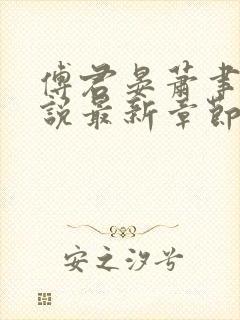 傅君晏萧事
說最新章節
安之汐兮